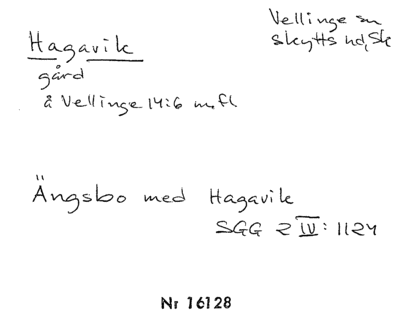 Hagavik
Vellinge sn
Skytts hd, Sk
gård
å Vellinge 14:6 m.fl
Ängsbo med Hagavik
SGG 2 IV: 1124
Nr 16128